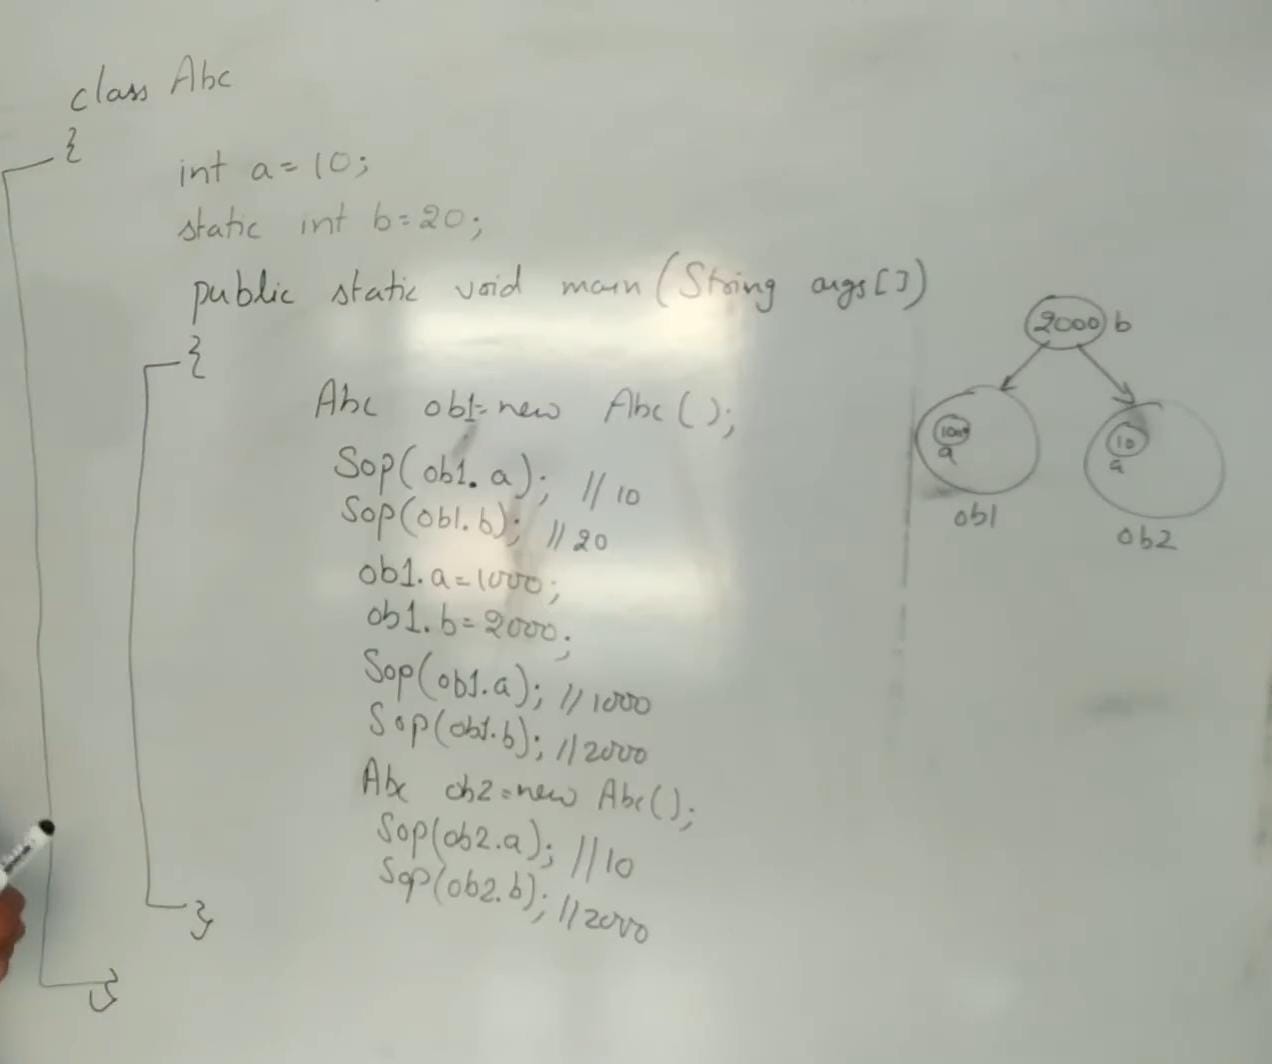 class Abc
{
int a=10;
static int b=20;
public static void main(String args[])
{
Abc ob1=new Abc();
Sop(ob1.a); //10
Sop(ob1.b); //20
ob1.a=1000;
ob1.b=2000;
Sop(ob1.a); //1000
Sop(ob1.b); //2000
Abc ob2=new Abc();
Sop(ob2.a); //10
Sop(ob2.b); //2000
}
}
2000 b
1000
a
ob1
10
a
ob2